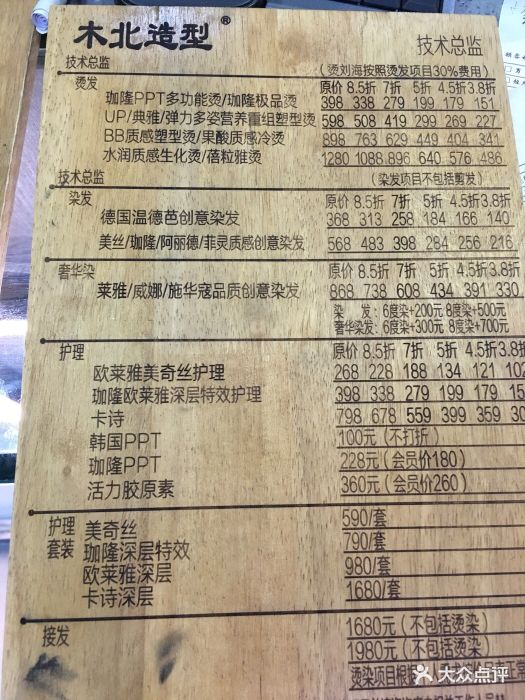 木北造型®
技术总监
技术总监
(烫刘海按照烫发项目30%费用)
烫发
原价 8.5折 7折 5折 4.5折 3.8折
珈隆PPT多功能烫/珈隆极品烫 398 338 279 199 179 151
UP/典雅/弹力多姿营养重组塑型烫 598 508 419 299 269 227
BB质感塑型烫/果酸质感冷烫 898 763 629 449 404 341
水润质感生化烫/蓓粒雅烫 1280 1088 896 640 576 486
技术总监
(染发项目不包括剪发)
染发
原价 8.5折 7折 5折 4.5折 3.8折
德国温德芭创意染发 368 313 258 184 166 140
美丝/珈隆/阿丽德/菲灵质感创意染发 568 483 398 284 256 216
奢华染
原价 8.5折 7折 5折 4.5折 3.8折
莱雅/威娜/施华寇品质创意染发 868 738 608 434 391 330
染 发:6度染+200元 8度染+500元
奢华染发:6度染+300元 8度染+700元
护理
原价 8.5折 7折 5折 4.5折 3.8折
欧莱雅美奇丝护理 268 228 188 134 121 102
珈隆欧莱雅深层特效护理 398 338 279 199 179
卡诗 798 678 559 399 359
韩国PPT 100元(不打折)
珈隆PPT 228元(会员价180)
活力胶原素 360元(会员价260)
护理套装
美奇丝 590/套
珈隆深层特效 790/套
欧莱雅深层 980/套
卡诗深层 1680/套
接发
1680元(不包括烫染)
1980元(不包括烫染)
烫染项目根据
大众点评